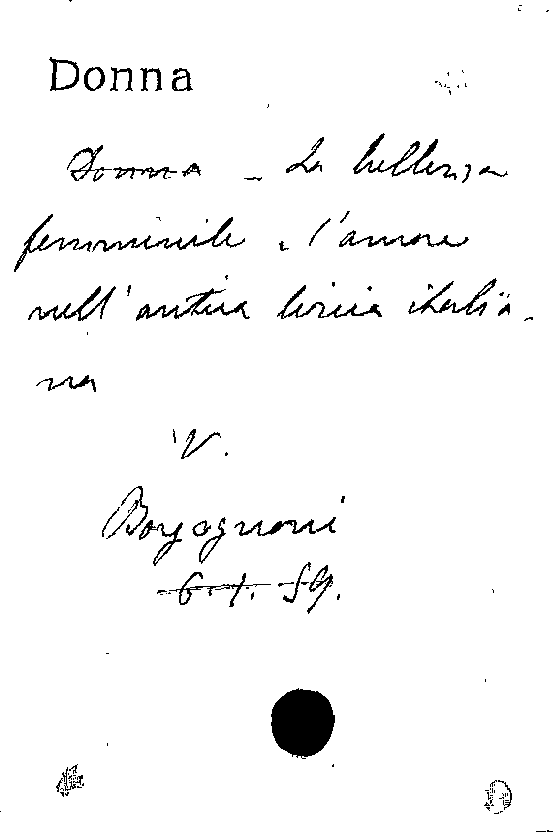 Donna
Donna - La bellezza
femminile e l'amore
nell'antica lirica italia-
na
V.
Borgognoni
6.1.59.